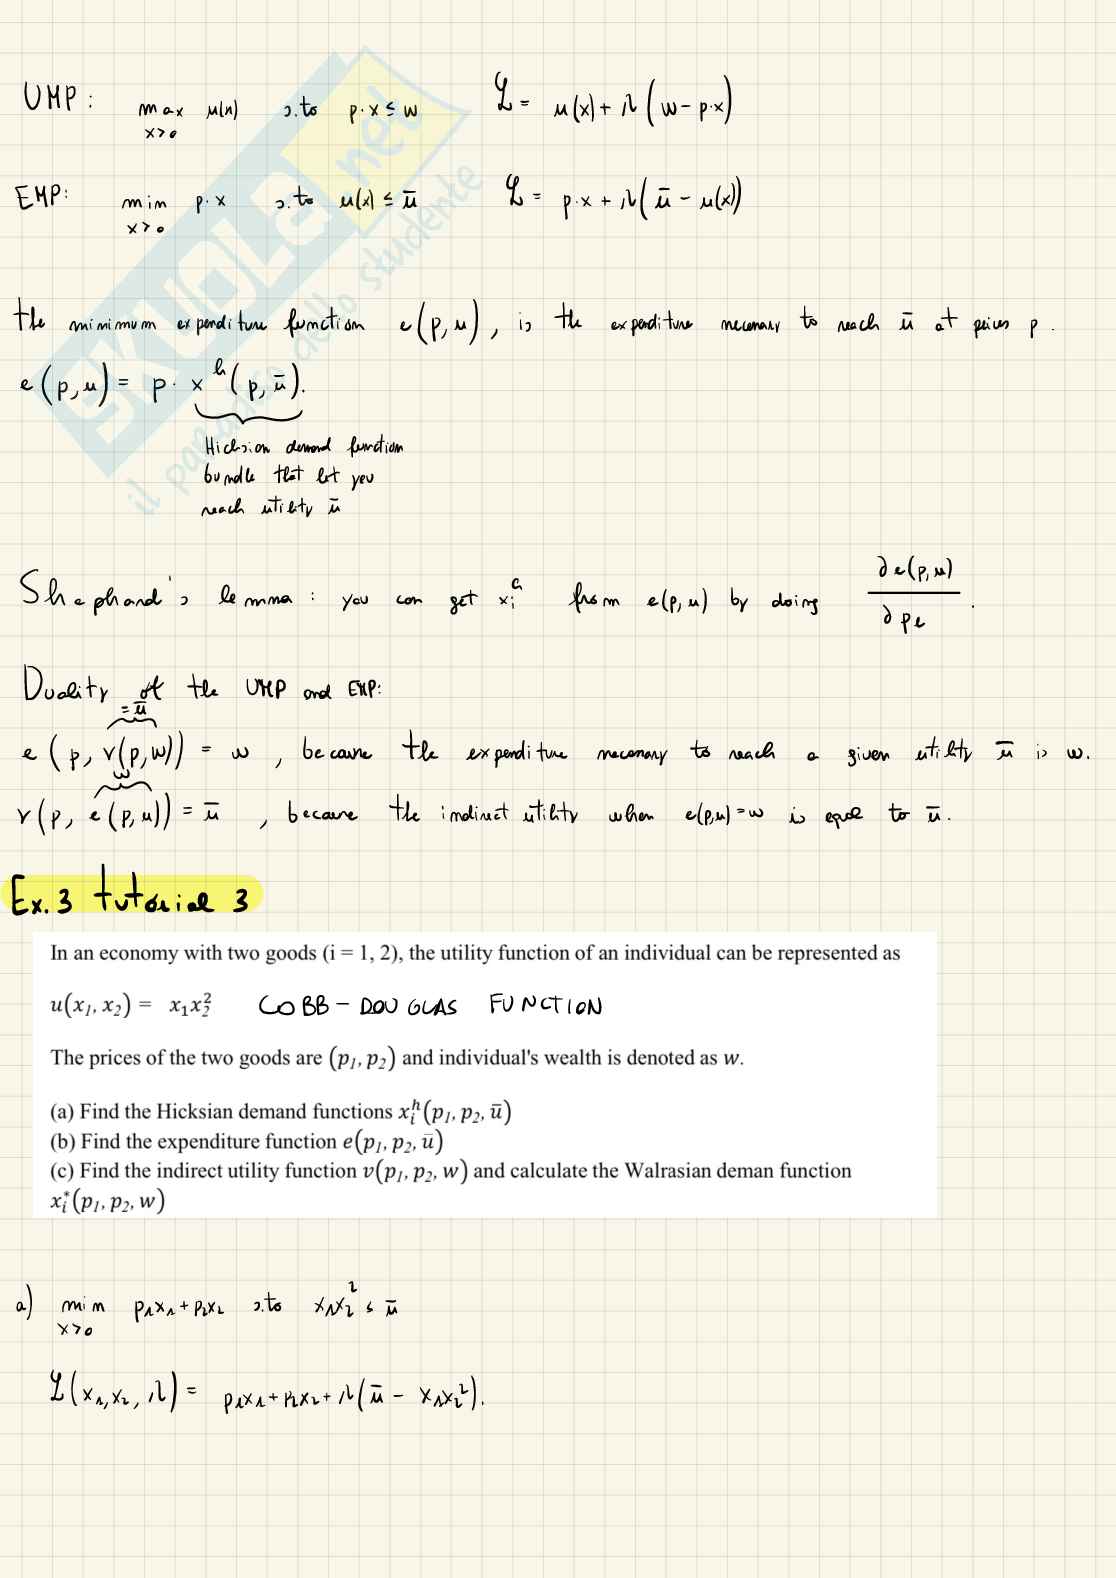 UMP: max u(x) s.to p·x ≤ w ℒ = u(x) + λ(w - p·x)
x>0
EMP: min p·x s.to u(x) ≤ ū ℒ = p·x + λ(ū - u(x))
x>0
the minimum expenditure function e(p,u), is the expenditure necessary to reach ū at prices p.
e(p,u) = p· xʰ(p,ū).
Hicksian demand function
bundle that let you
reach utility ū
Shephard's lemma: you can get xᵢʰ from e(p,u) by doing ∂e(p,u)/∂pℓ.
Duality of the UMP and EMP:
=ū
e(p, v(p,w)) = w, because the expenditure necessary to reach a given utility ū is w.
w
v(p, e(p,u)) = ū, because the indirect utility when e(p,u)=w is equal to ū.
Ex.3 tutorial 3
In an economy with two goods (i = 1, 2), the utility function of an individual can be represented as
u(x₁, x₂) = x₁x₂² COBB-DOUGLAS FUNCTION
The prices of the two goods are (p₁, p₂) and individual's wealth is denoted as w.
(a) Find the Hicksian demand functions xᵢʰ(p₁, p₂, ū)
(b) Find the expenditure function e(p₁, p₂, ū)
(c) Find the indirect utility function v(p₁, p₂, w) and calculate the Walrasian deman function
xᵢ*(p₁, p₂, w)
a) min p₁x₁ + p₂x₂ s.to x₁x₂² ≤ ū
x>0
ℒ(x₁,x₂,λ) = p₁x₁ + p₂x₂ + λ(ū - x₁x₂²).
SKUOLA.net
il paradiso dello studente